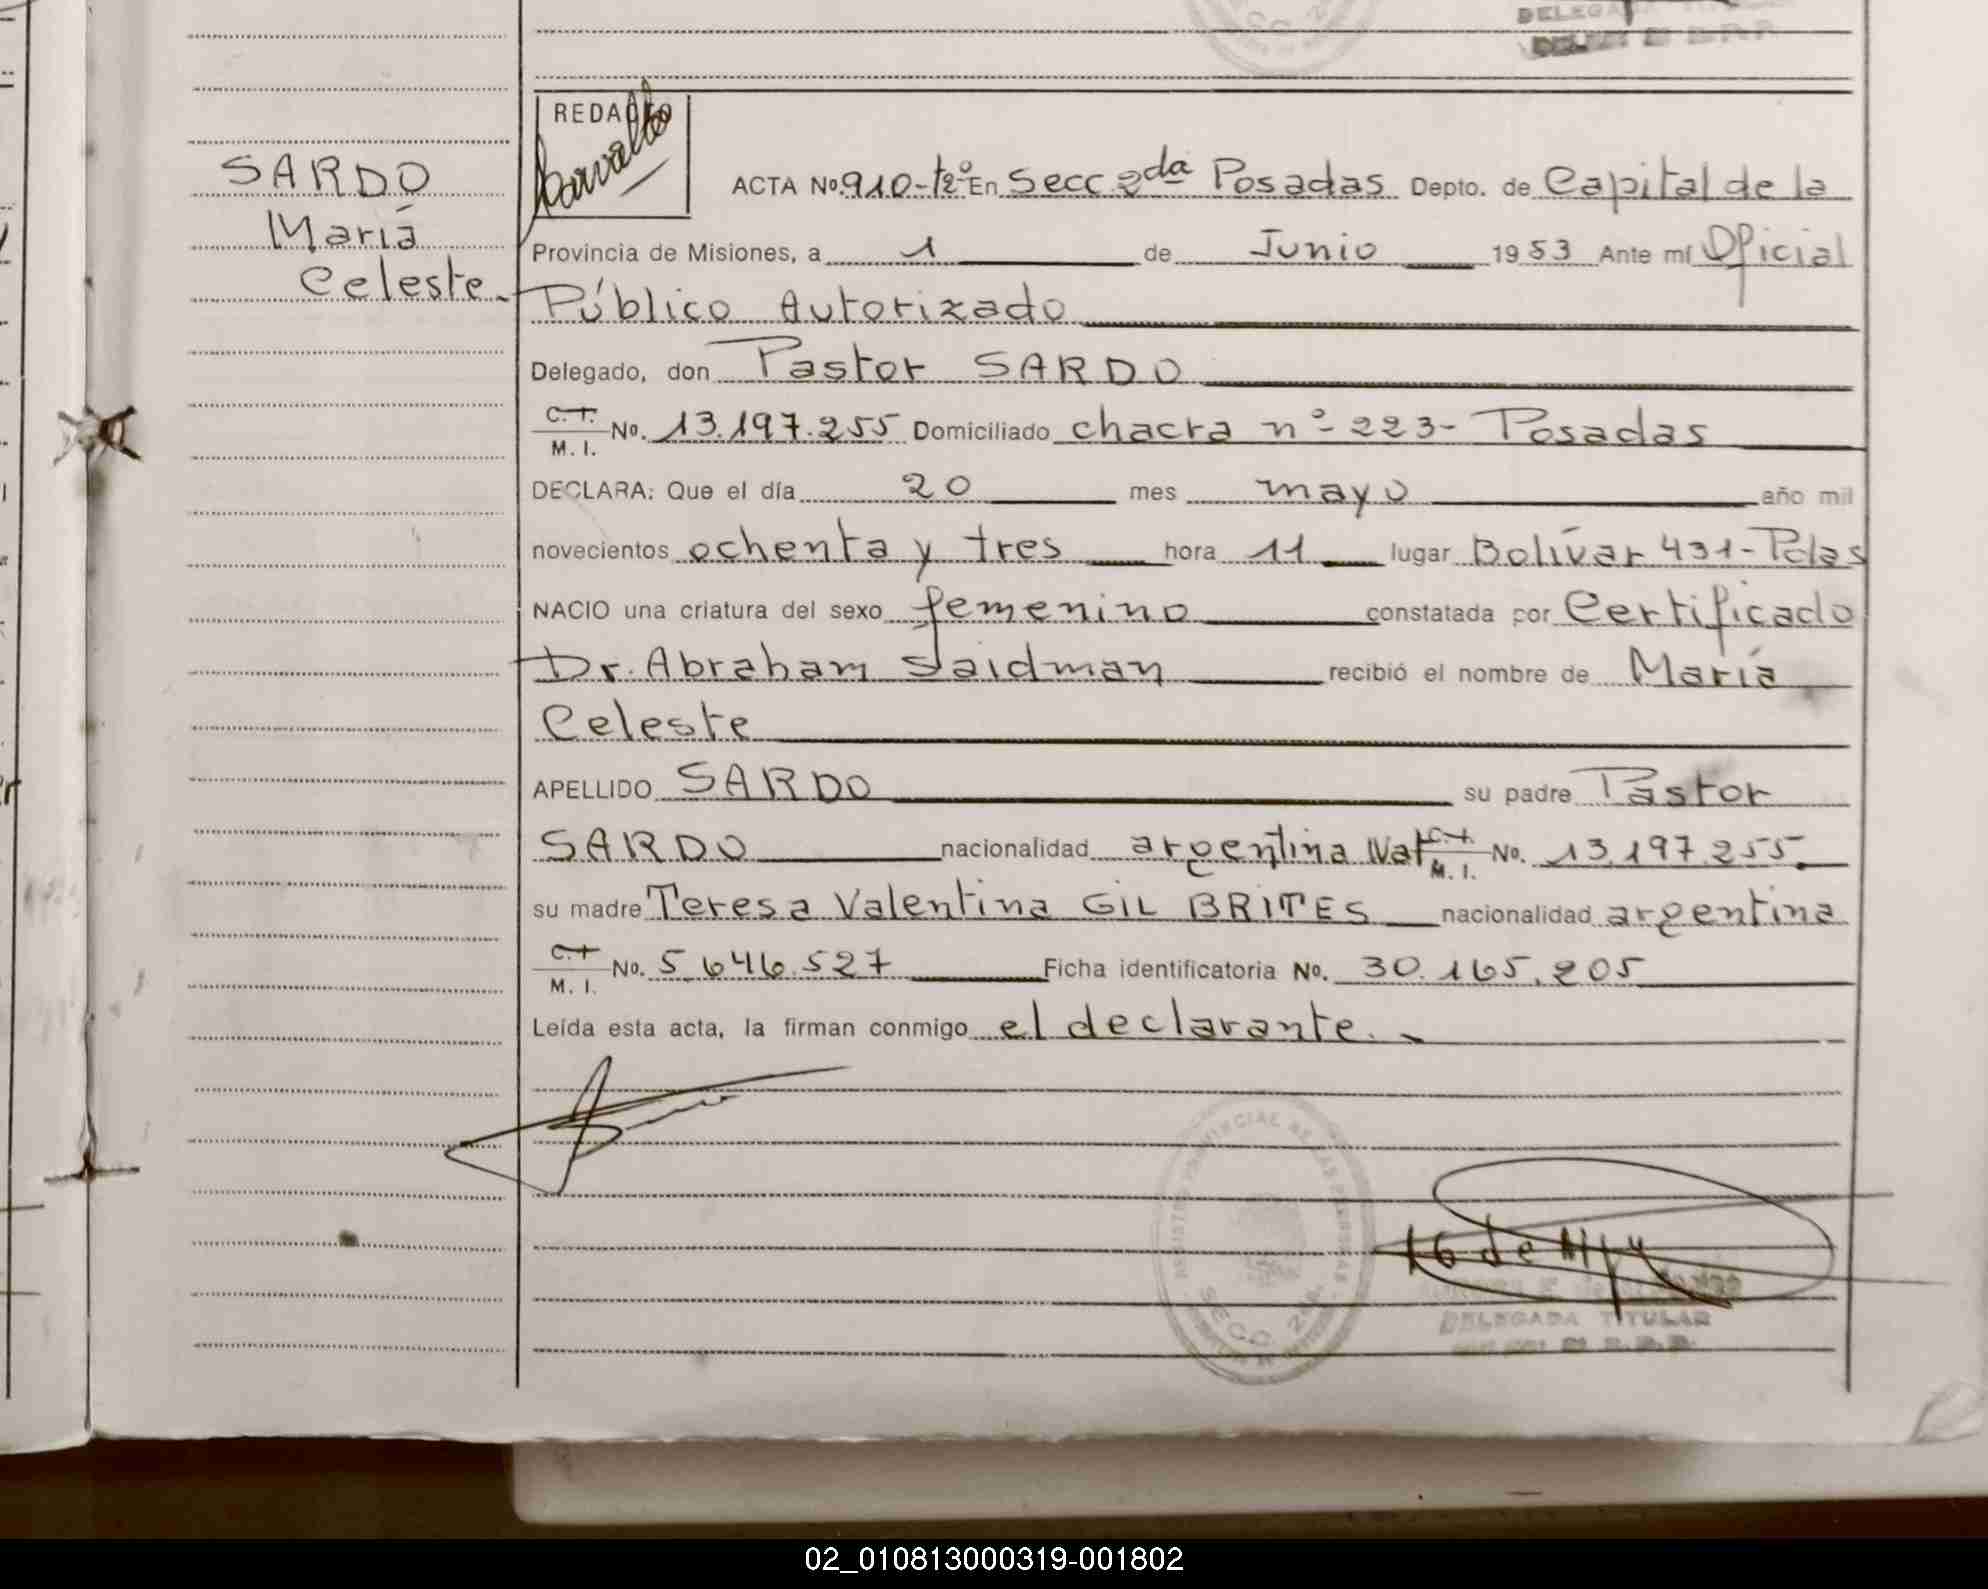 DELEGADA
REDACTO
Carvallo
SARDO
María
Celeste.
ACTA No. 910-tº2º En Secc 2da Posadas Depto. de Capital de la
Provincia de Misiones, a 1 de Junio 1983 Ante mí Oficial
Público Autorizado
Delegado, don Pastor SARDO
C.T. M. I. No. 13.197.255 Domiciliado chacra nº 223- Posadas
DECLARA: Que el día 20 mes mayo año mil
novecientos ochenta y tres hora 11 lugar Bolívar 431-Pdas
NACIO una criatura del sexo femenino constatada por Certificado
Dr. Abraham Saidman recibió el nombre de María
Celeste
APELLIDO SARDO su padre Pastor
SARDO nacionalidad argentina Nat C.T. M. I. No. 13.197.255.
su madre Teresa Valentina GIL BRITES nacionalidad argentina
C.T. M. I. No. 5.646.527 Ficha identificatoria No. 30.165.205
Leída esta acta, la firman conmigo el declarante.
REGISTRO PROVINCIAL DE LAS PERSONAS
SECC. 2da.
DELEGADA TITULAR
02_010813000319-001802